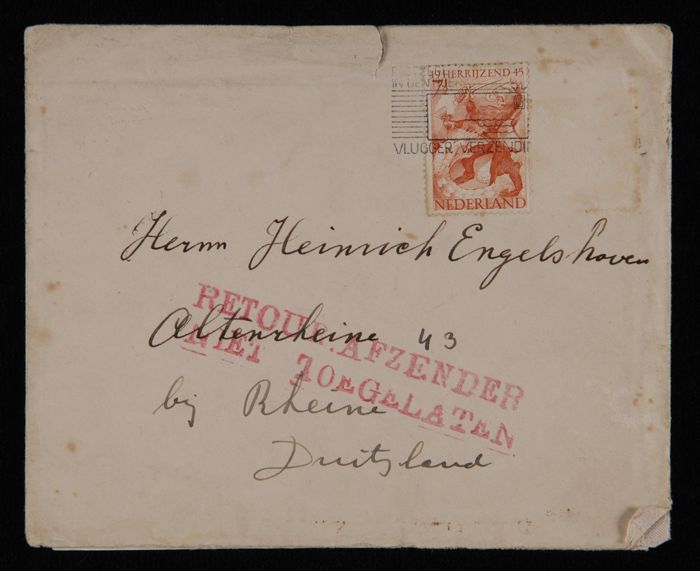 19 HERRIJZEND 45
7½
IN DEN
VLUGGER VERZENDI
NEDERLAND
Herrn Heinrich Engelshoven
Altenrheine 43
bij Rheine
Duitsland
RETOUR AFZENDER
NIET TOEGELATEN